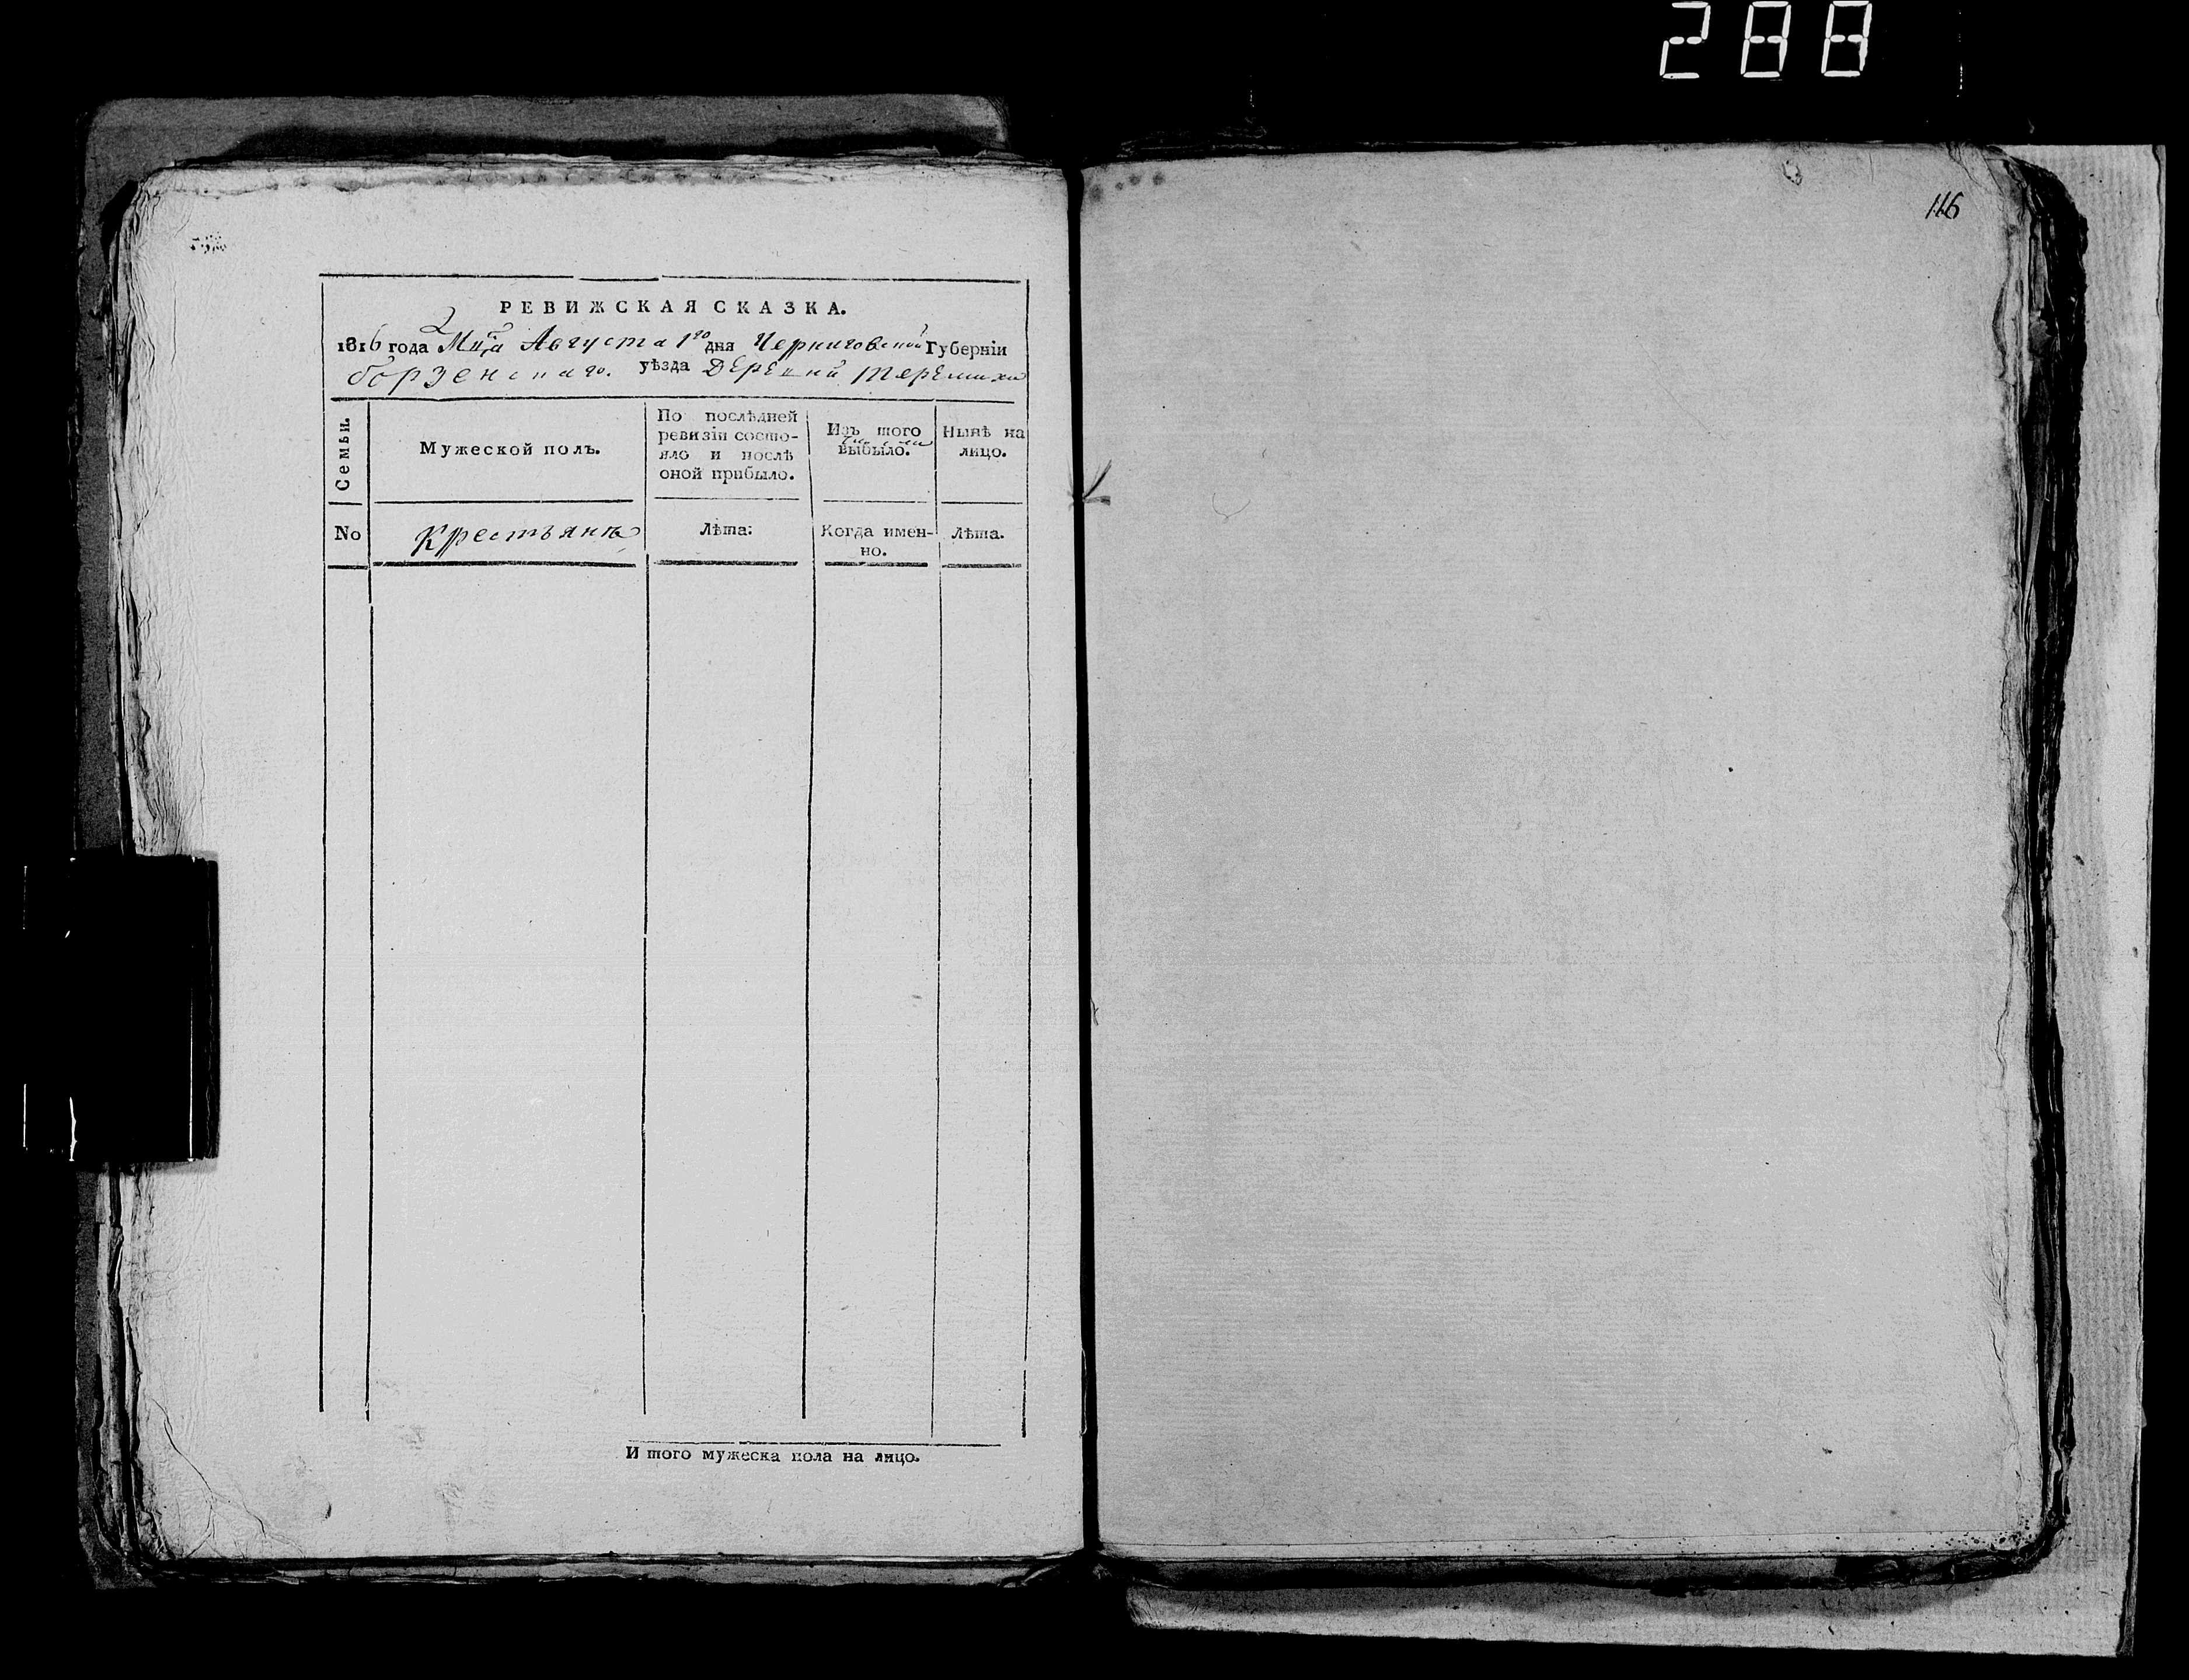 288
116
РЕВИЖСКАЯ СКАЗКА.
1816 года Мца Августа 1го дня Черниговской Губерніи
борзенскаго. уѣзда Деревни
Семьи.
Мужеской полъ.
По послѣдней
ревизіи состо-
яло и послѣ
оной прибыло.
Изъ того
выбыло.
Нынѣ на
лицо.
No
Крестьяне
Лѣта:
Когда имен-
но.
Лѣта.
И того мужеска пола на лицо.